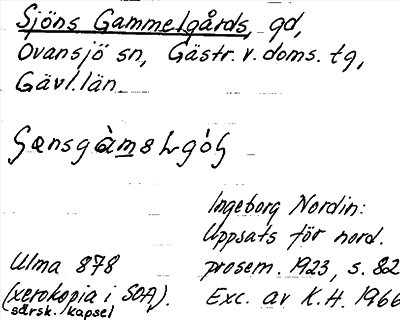 Sjöns Gammelgårds, gd,
Ovansjö sn, Gästr. v. doms. tg,
Gävl. län
Ingeborg Nordin:
Uppsats för nord.
prosem. 1923, s. 82
Exc. av K.H. 1966
Ulma 878
(xerokopia i SOA,
särsk. kapsel).